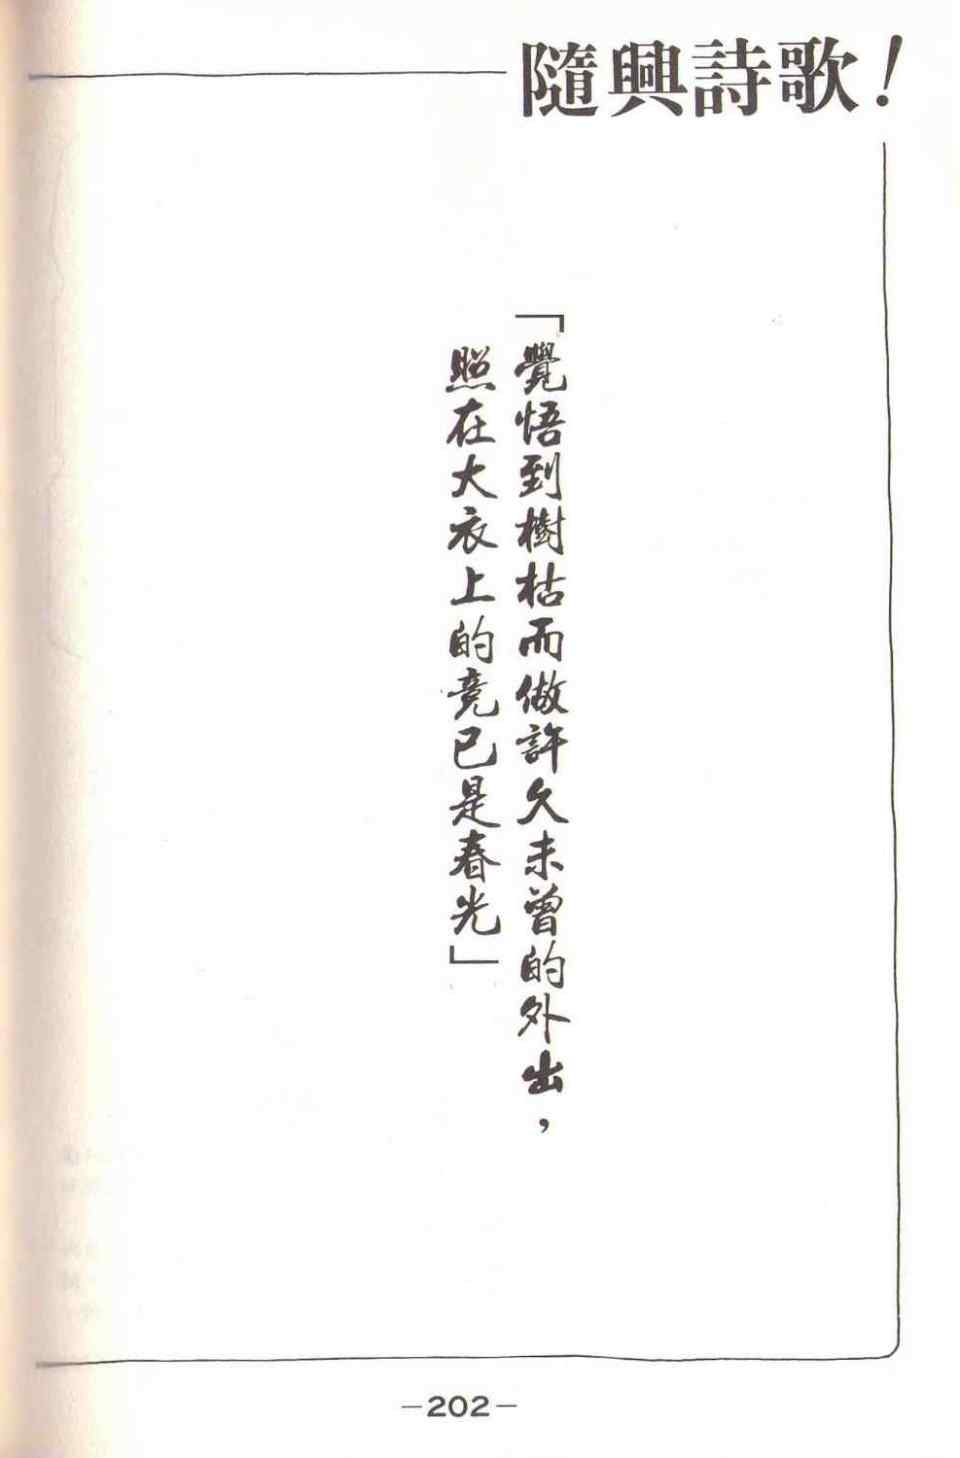 隨興詩歌！
「覺悟到樹枯而做許久未曾的外出，
照在大衣上的竟已是春光」
—202—